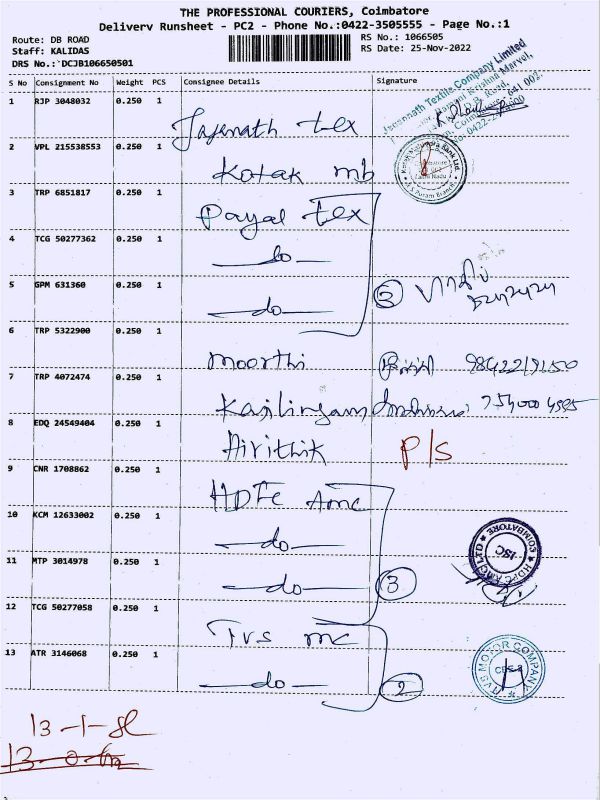 THE PROFESSIONAL COURIERS, Coimbatore
Delivery Runsheet - PC2 - Phone No.:0422-3505555 - Page No.:1
Route: DB ROAD
Staff: KALIDAS
DRS No.:`DCJB106650501
RS No.: 1066505
RS Date: 25-Nov-2022
S No Consignment No Weight PCS Consignee Details Signature
1 RJP 3048032 0.250 1
Jagenath tex
Jagannath Textile Company Limited
2 VPL 215538553 0.250 1
Kotak mb
3 TRP 6851817 0.250 1
Payal tex
4 TCG 50277362 0.250 1
do
5 GPM 631360 0.250 1
do
3
6 TRP 5322900 0.250 1
Moorthi 98422
7 TRP 4072474 0.250 1
Kasilingam
8 EDQ 24549404 0.250 1
Hirithik P/S
9 CNR 1708862 0.250 1
HDFC Amc
10 KCM 12633002 0.250 1
do
HDFC AMC LTD ISC COIMBATORE
11 MTP 3014978 0.250 1
do 3
12 TCG 50277058 0.250 1
Tvs mc
13 ATR 3146068 0.250 1
do 2
TVS MOTOR COMPANY
13-1-